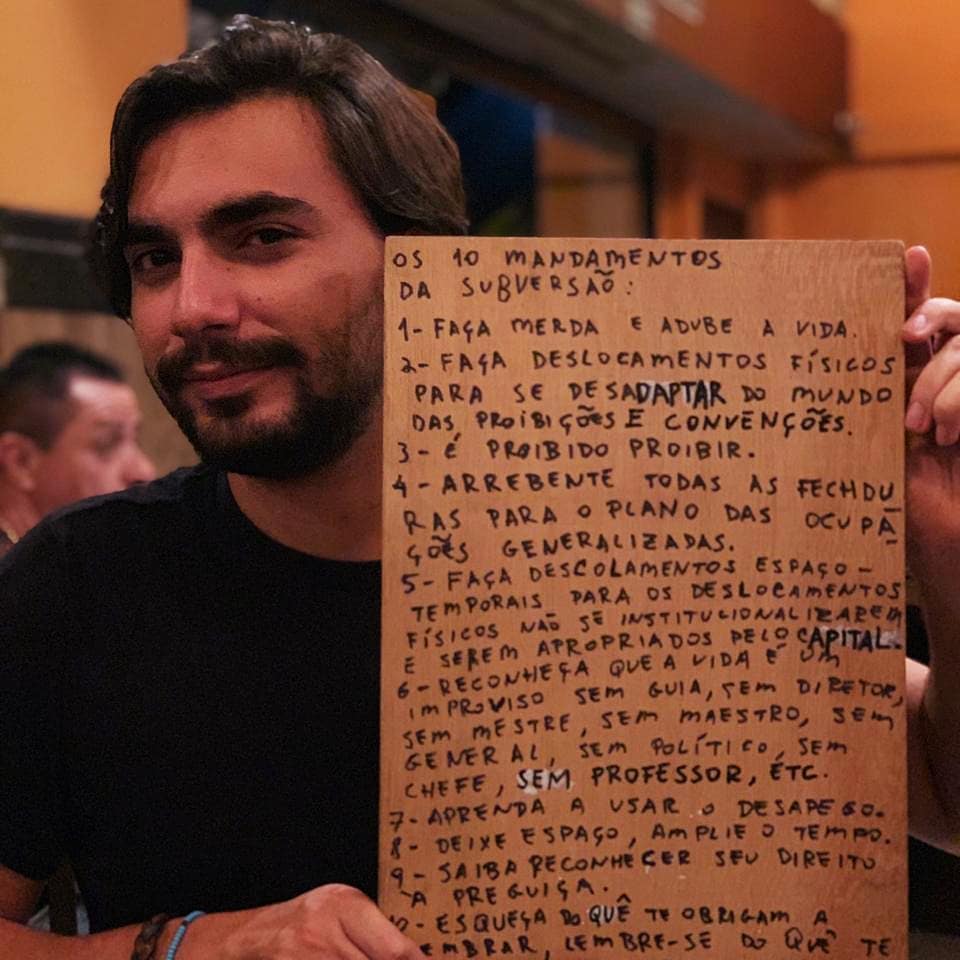 OS 10 MANDAMENTOS
DA SUBVERSÃO:
1- FAÇA MERDA E ADUBE A VIDA.
2- FAÇA DESLOCAMENTOS FÍSICOS
PARA SE DESADAPTAR DO MUNDO
DAS PROIBIÇÕES E CONVENÇÕES.
3- É PROIBIDO PROIBIR.
4- ARREBENTE TODAS AS FECHDU
RAS PARA O PLANO DAS OCUPA
ÇÕES GENERALIZADAS.
5- FAÇA DESCOLAMENTOS ESPAÇO-
TEMPORAIS PARA OS DESLOCAMENTOS
FÍSICOS NÃO SE INSTITUCIONALIZAREM
E SEREM APROPRIADOS PELO CAPITAL.
6- RECONHEÇA QUE A VIDA É UM
IMPROVISO SEM GUIA, SEM DIRETOR,
SEM MESTRE, SEM MAESTRO, SEM
GENERAL, SEM POLÍTICO, SEM
CHEFE, SEM PROFESSOR, ÉTC.
7- APRENDA A USAR O DESAPEGO.
8- DEIXE ESPAÇO, AMPLIE O TEMPO.
9- SAIBA RECONHEÇER SEU DIREITO
À PREGUIÇA.
10- ESQUEÇA DO QUÊ TE OBRIGAM A
EMBRAR, LEMBRE-SE DO QUÊ TE